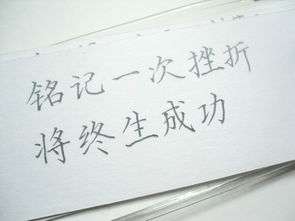 铭记一次挫折
将终生成功